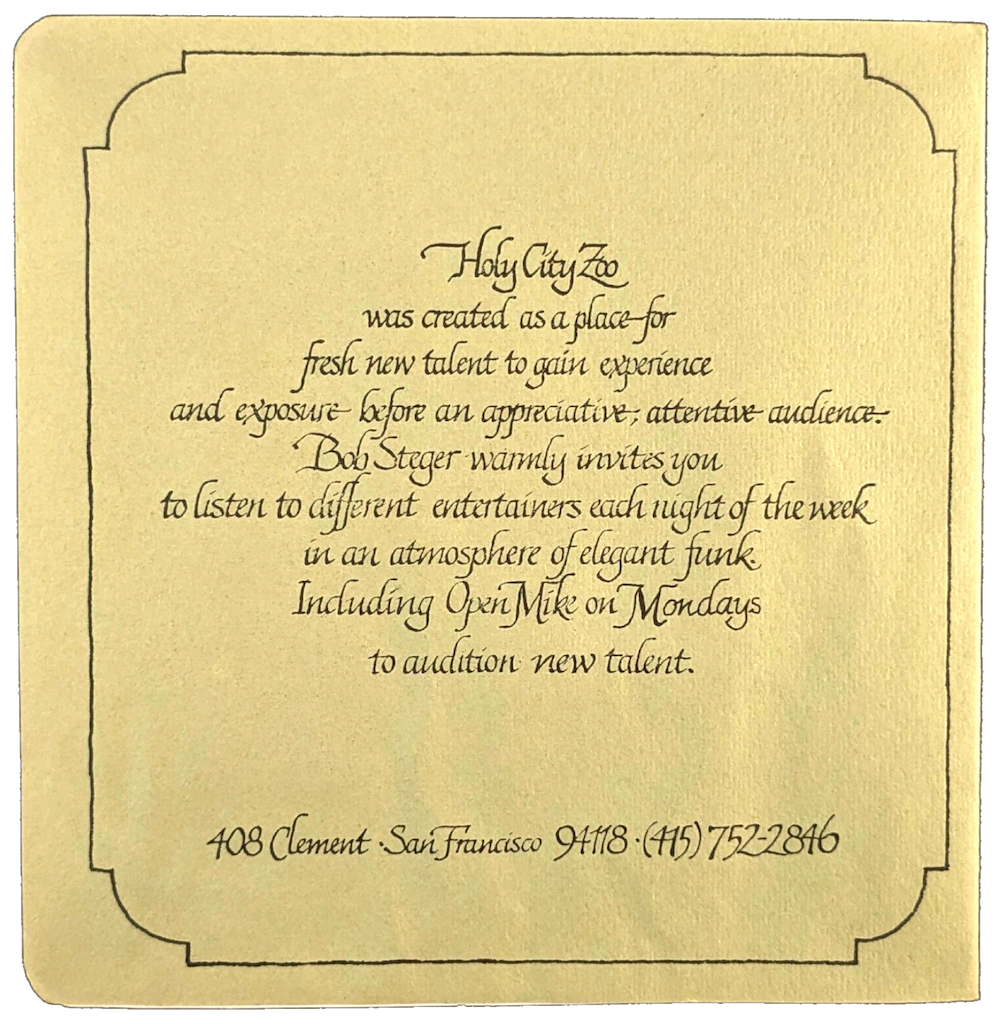 Holy City Zoo
was created as a place for
fresh new talent to gain experience
and exposure before an appreciative, attentive audience.
Bob Steger warmly invites you
to listen to different entertainers each night of the week
in an atmosphere of elegant funk.
Including Open Mike on Mondays
to audition new talent.
408 Clement · San Francisco 94118 · (415) 752-2846